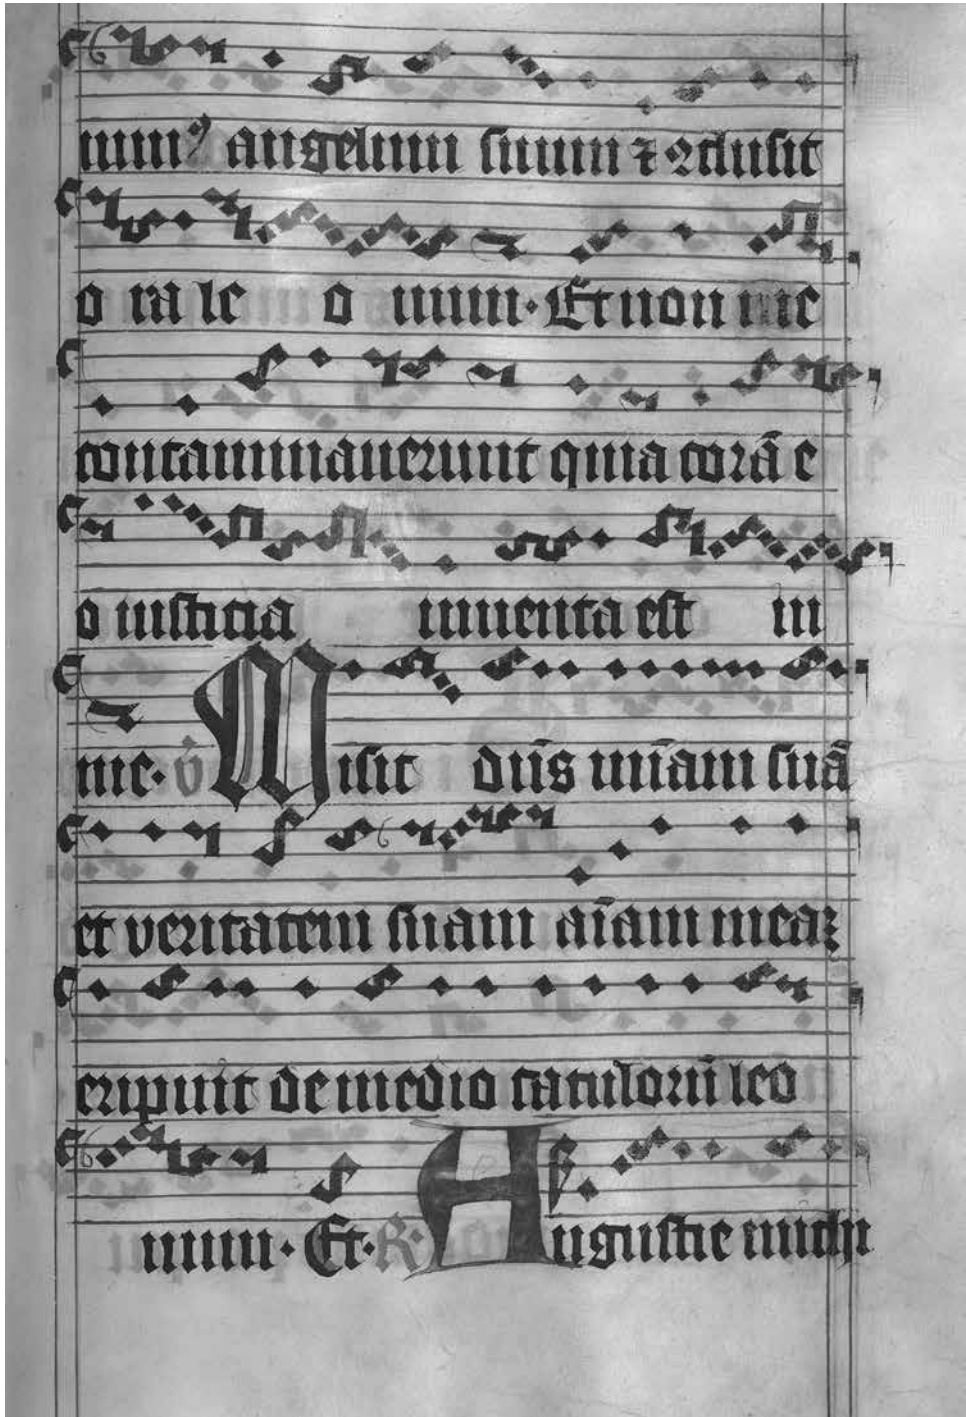 nim⁹ angelum suum ⁊ ꝯclusit
o ra le o num. Et non me
contaminauerunt quia corā e
o iusticia inuenta est in
me. v̊ Misit dn̄s mīam suā
et veritatem suam aīam meaꝫ
eripuit de medio catuloꝛū leo
num. Et. R. Angustie michi